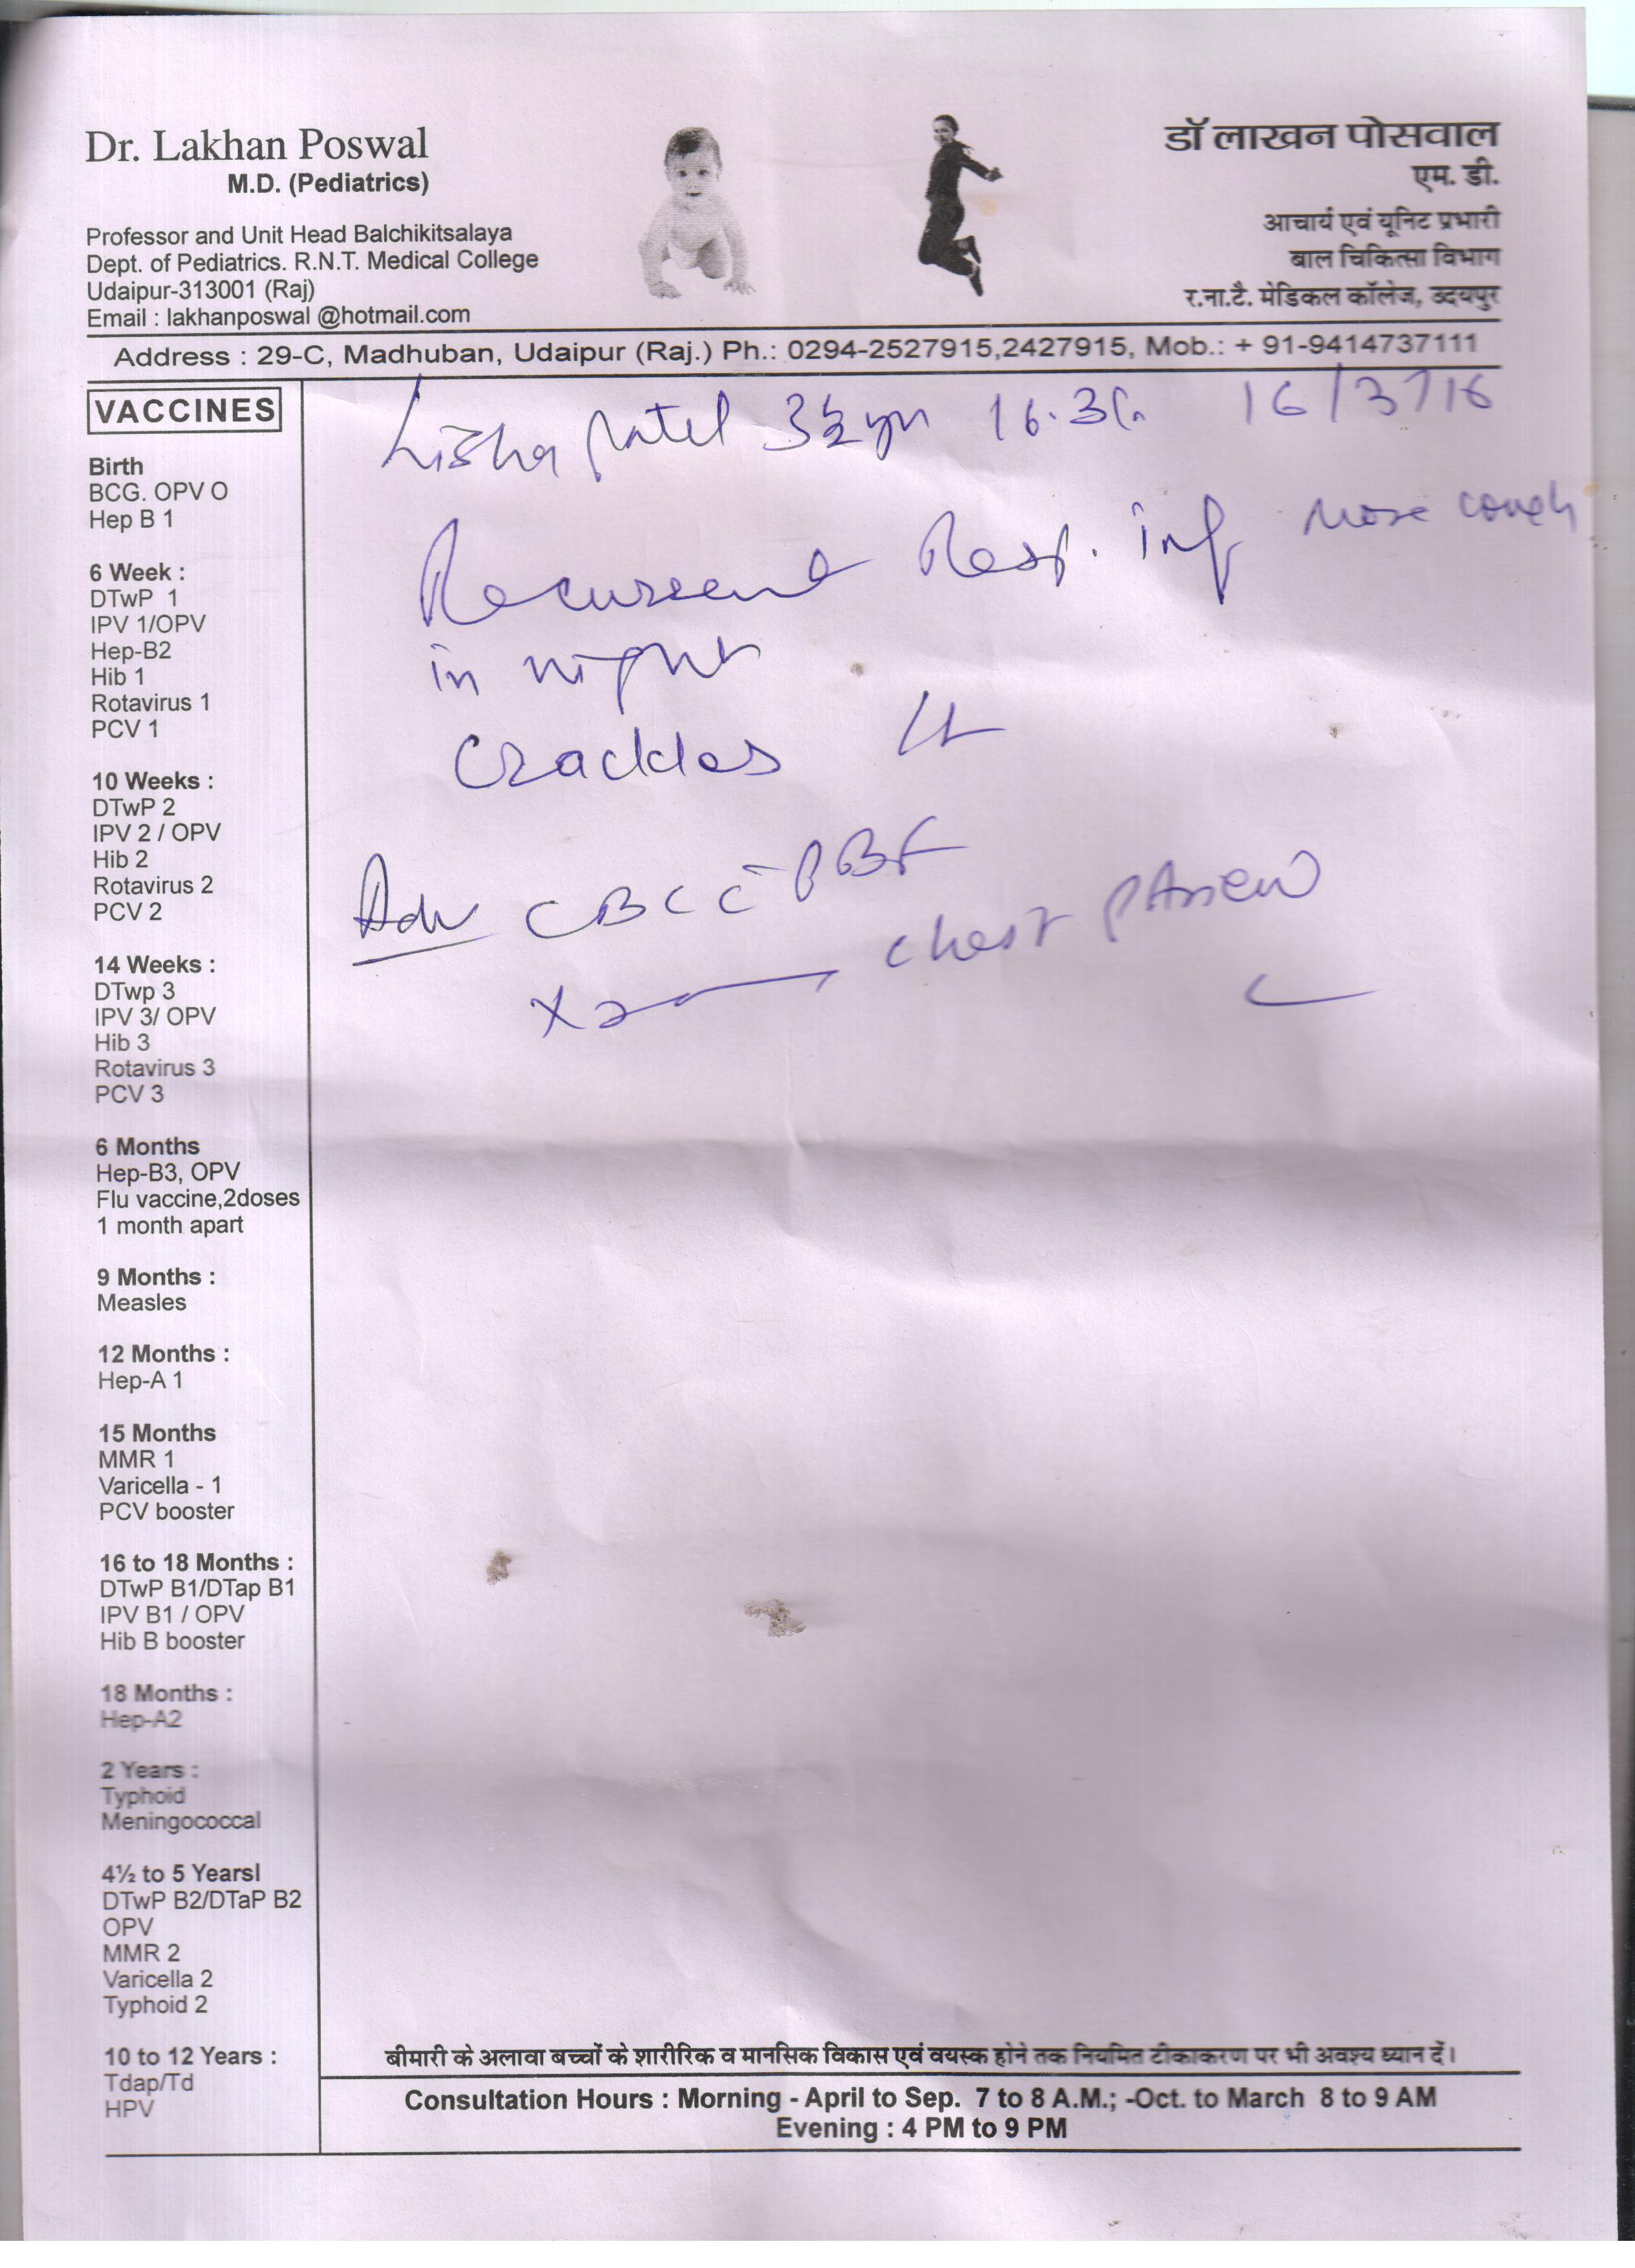 Dr. Lakhan Poswal
M.D. (Pediatrics)
Professor and Unit Head Balchikitsalaya
Dept. of Pediatrics. R.N.T. Medical College
Udaipur-313001 (Raj)
Email : lakhanposwal @hotmail.com
डॉ लाखन पोसवाल
एम. डी.
आचार्य एवं यूनिट प्रभारी
बाल चिकित्सा विभाग
र.ना.टै. मेडिकल कॉलेज, उदयपुर
Address : 29-C, Madhuban, Udaipur (Raj.) Ph.: 0294-2527915,2427915, Mob.: + 91-9414737111
VACCINES
Birth
BCG. OPV O
Hep B 1
6 Week :
DTwP 1
IPV 1/OPV
Hep-B2
Hib 1
Rotavirus 1
PCV 1
10 Weeks :
DTwP 2
IPV 2 / OPV
Hib 2
Rotavirus 2
PCV 2
14 Weeks :
DTwp 3
IPV 3/ OPV
Hib 3
Rotavirus 3
PCV 3
6 Months
Hep-B3, OPV
Flu vaccine,2doses
1 month apart
9 Months :
Measles
12 Months :
Hep-A 1
15 Months
MMR 1
Varicella - 1
PCV booster
16 to 18 Months :
DTwP B1/DTap B1
IPV B1 / OPV
Hib B booster
18 Months :
Hep-A2
2 Years :
Typhoid
Meningococcal
4½ to 5 Yearsl
DTwP B2/DTaP B2
OPV
MMR 2
Varicella 2
Typhoid 2
10 to 12 Years :
Tdap/Td
HPV
Lisha Patel 3½ yr 16.3 16/3/16
Recurrent Resp. inf more cough
in night
Crackles Lt
Adv CBC c̄ PBF
X ray chest PA view
बीमारी के अलावा बच्चों के शारीरिक व मानसिक विकास एवं वयस्क होने तक नियमित टीकाकरण पर भी अवश्य ध्यान दें।
Consultation Hours : Morning - April to Sep. 7 to 8 A.M.; -Oct. to March 8 to 9 AM
Evening : 4 PM to 9 PM